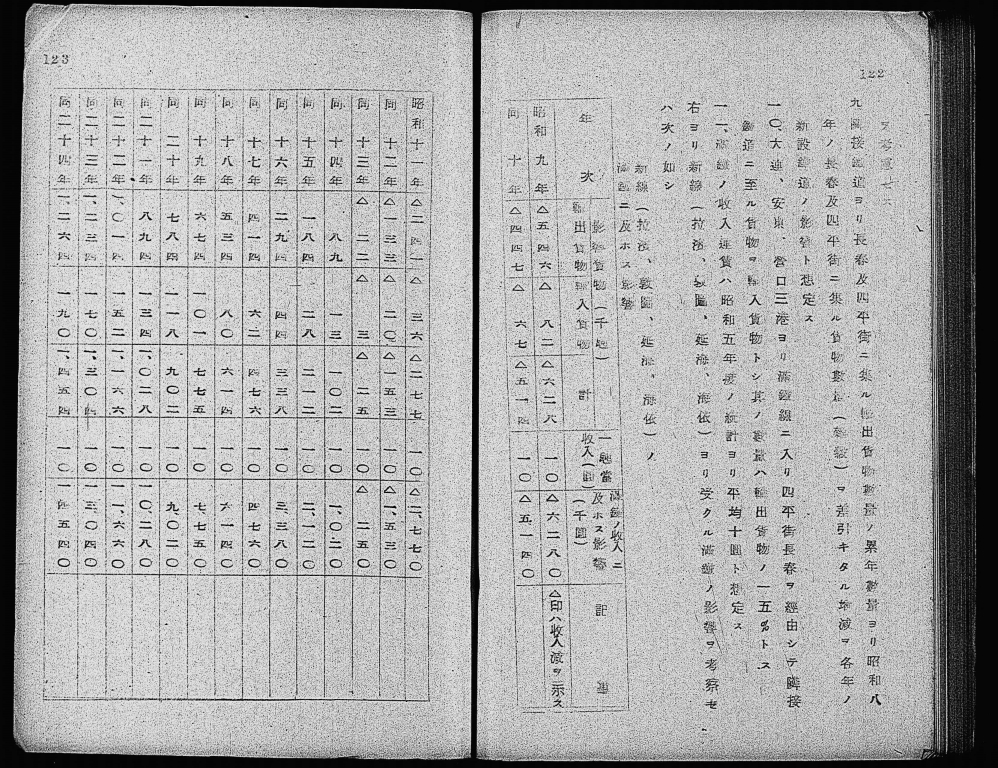 122
九、隣接鐵道ヨリ長春及四平街ニ集ル輸出貨物數量ノ累年數量ヨリ昭和八
年ノ長春及四平街ニ集ル貨物數量(總數)ヲ差引キタル增減ヲ各年ノ
新設鐵道ノ影響ト想定ス
一〇、大連、安東、營口三港ヨリ滿鐵線ニ入リ四平街長春ヲ經由シテ隣接
鐵道ニ至ル貨物ヲ輸入貨物トシ其ノ數量ハ輸出貨物ノ一五%トス
一一、滿鐵ノ收入運賃ハ昭和五年度ノ統計ヨリ平均十圓ト想定ス
右ヨリ新線(拉法、敦圖、延海、海依)ヨリ受クル滿鐵ノ影響ヲ考察セ
ハ次ノ如シ
新線(拉法、敦圖、延海、海依)ノ
滿鐵ニ及ホス影響
年次 影響貨物(千瓲) 輸出貨物 輸入貨物 計 一瓲當收入(圓) 滿鐵ノ收入ニ及ホス影響(千圓) 記事
昭和九年 △五四六 △八二 △六二八 一〇 △六二八〇 △印ハ收入減ヲ示ス
同十年 △四四七 △六七 △五一四 一〇 △五一四〇
123
昭和十一年 △二四一 △三六 △二七七 一〇 △二、七七〇
同十二年 △一三三 △二〇 △一五三 一〇 △一、五三〇
同十三年 △二二 △三 △二五 一〇 △二五〇
同十四年 八九 一三 一〇二 一〇 一、〇二〇
同十五年 一八四 二八 二一二 一〇 二、一二〇
同十六年 二九四 四四 三三八 一〇 三、三八〇
同十七年 四一四 六二 四七六 一〇 四七六〇
同十八年 五三四 八〇 六一四 一〇 六、一四〇
同十九年 六七四 一〇一 七七五 一〇 七、七五〇
同二十年 七八四 一一八 九〇二 一〇 九、〇二〇
同二十一年 八九四 一三四 一、〇二八 一〇 一〇、二八〇
同二十二年 一、〇一四 一五二 一、一六六 一〇 一一、六六〇
同二十三年 一、一三四 一七〇 一、三〇四 一〇 一三、〇四〇
同二十四年 一、二六四 一九〇 一、四五四 一〇 一四、五四〇